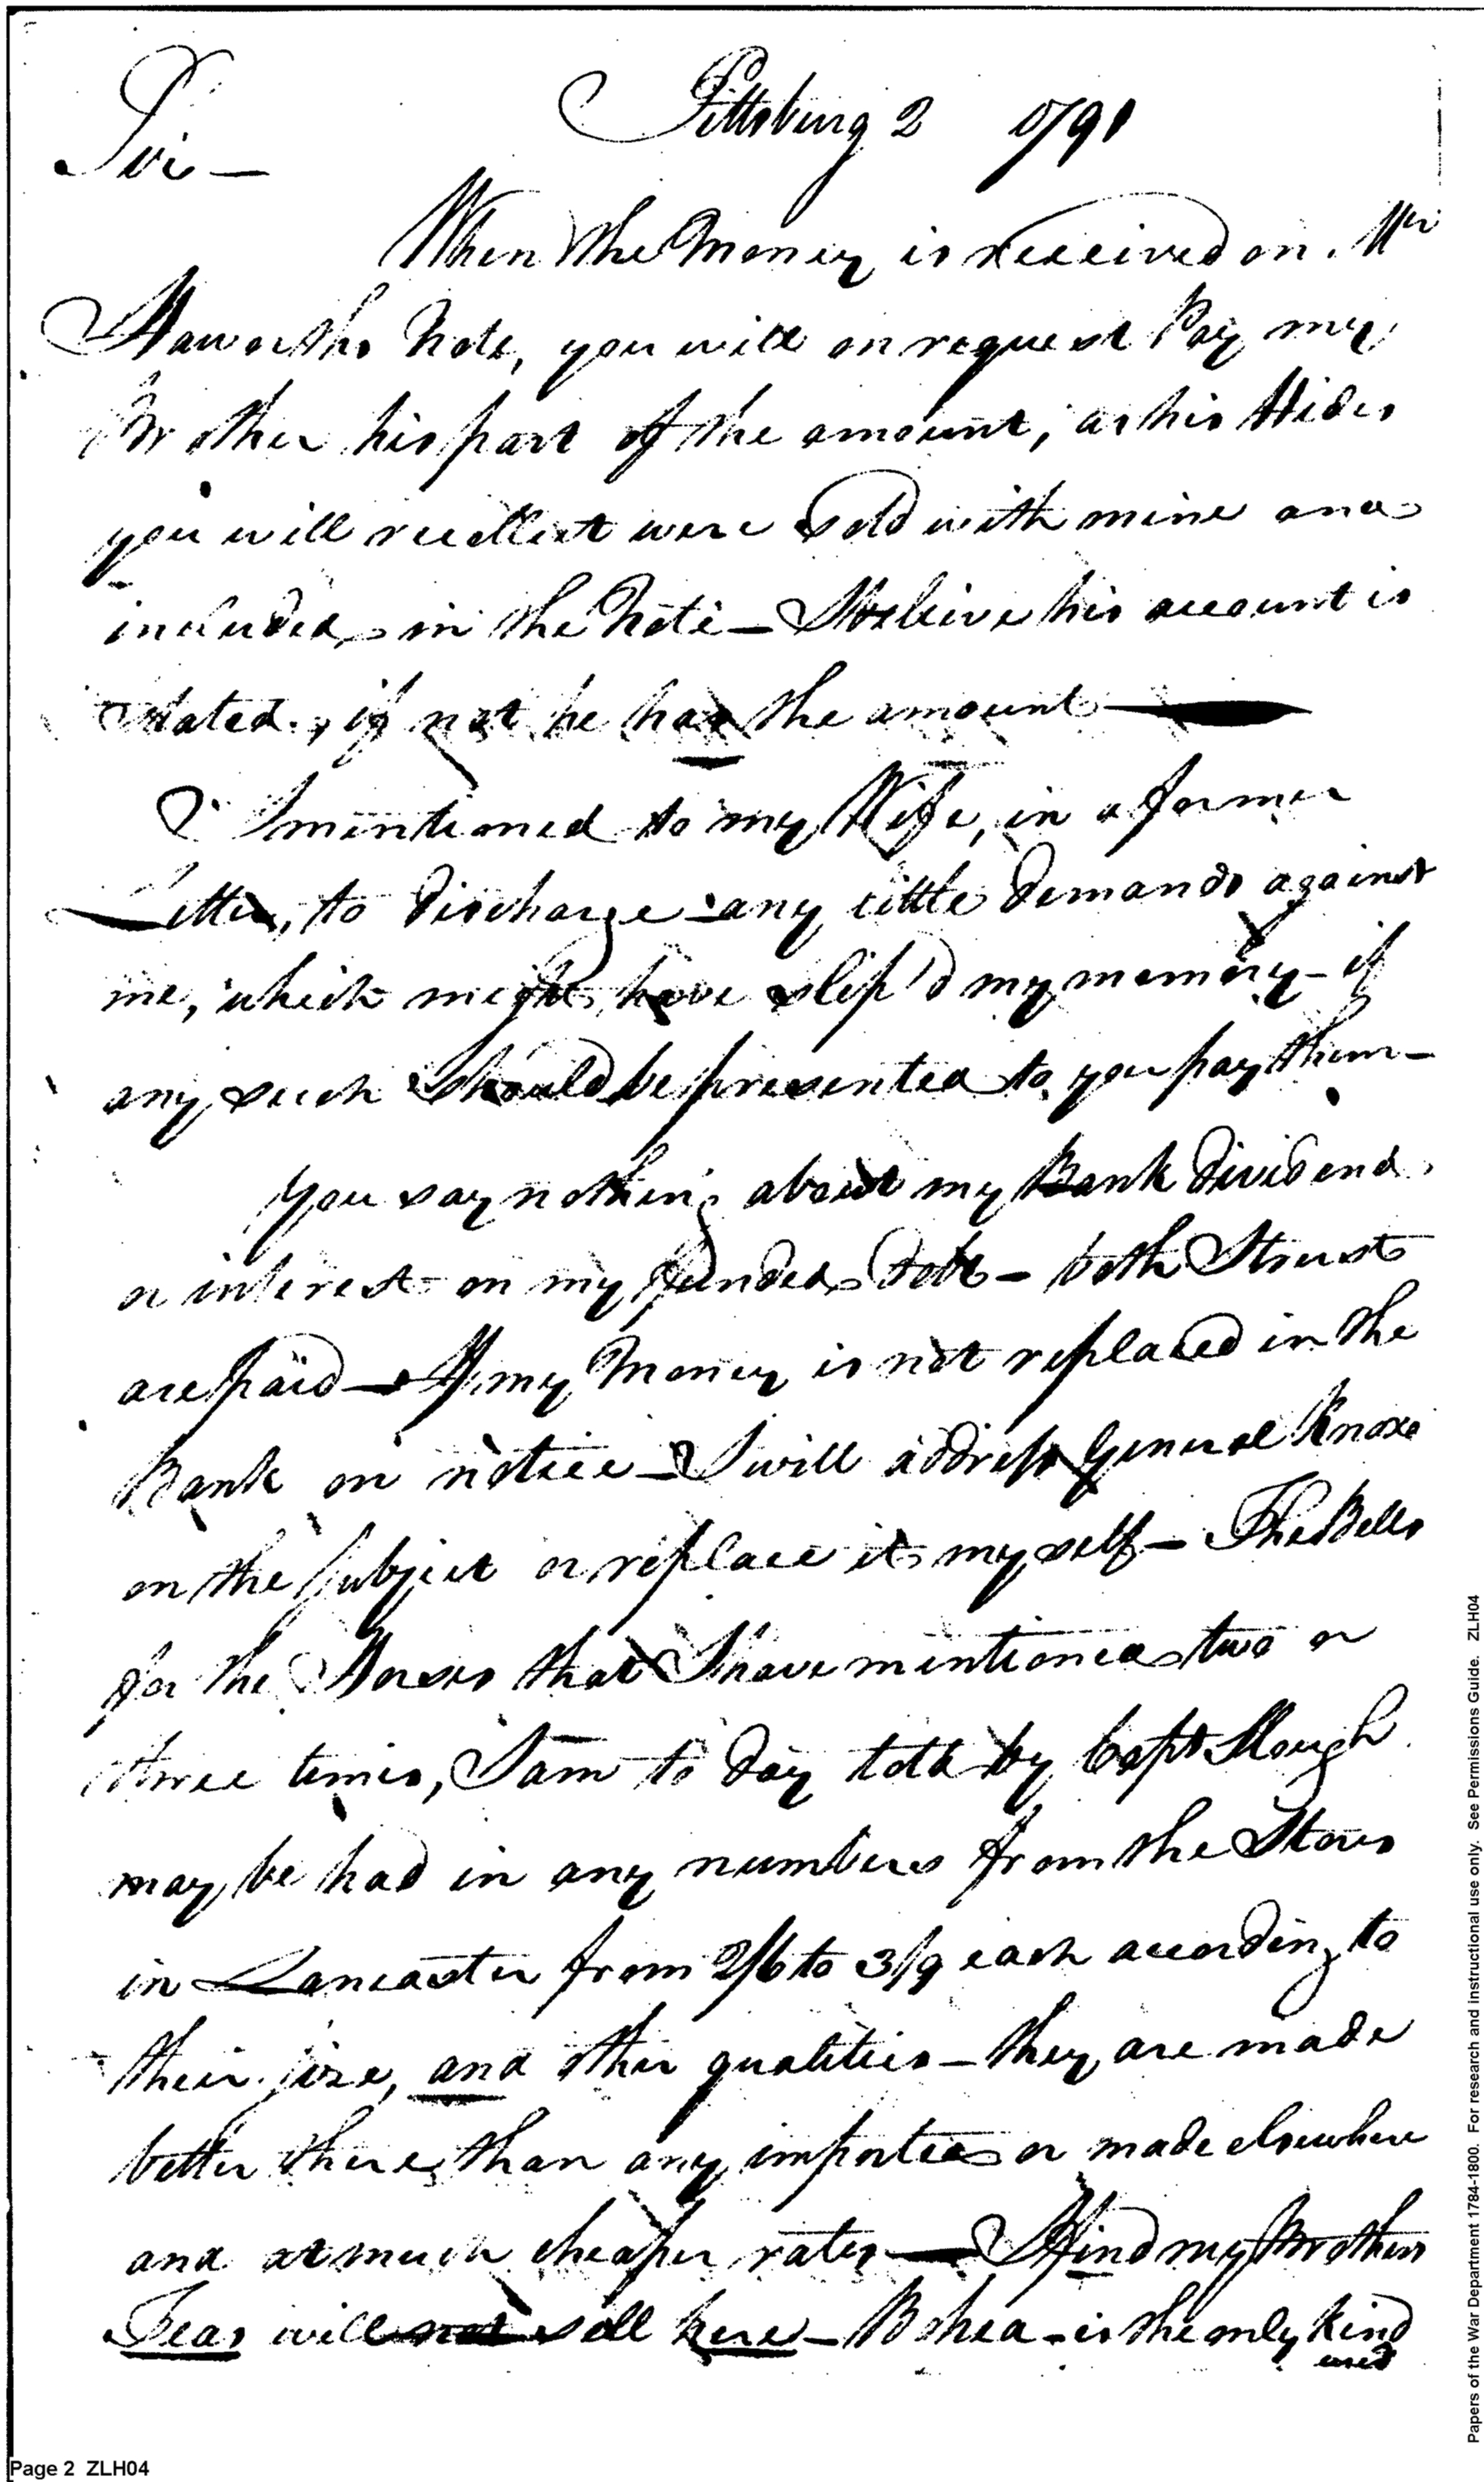 Pittsburg 2 1791
Sir —
When the Money is received on Mr
Haworths Note, you will on request Pay my
Brother his part of the amount, as his Hides
you will recollect were Sold with mine and
included in the Note — I beleive his account is
stated, if not he has the amount —
I mentioned to my Wife, in a former
Letter, to discharge any little demands against
me, which might have slip'd my memory — if
any such should be presented to you pay them —
You say nothing about my Bank dividend
or interest on my funded debt — both I trust
are paid — If my Money is not replaced in the
Bank on notice — I will address General Knox
on the Subject or replace it myself — The Bells
for the Horses that I have mentioned two or
three times, I am to day told by Capt Slough
may be had in any numbers from the Stores
in Lancaster from 2/6 to 3/9 each according to
their size, and other qualities — they are made
better there than any imported or made elsewhere
and at much cheaper rates — I find my Brothers
Teas will not sell here — Bohea is the only kind
used
Page 2 ZLH04
Papers of the War Department 1784-1800. For research and instructional use only. See Permissions Guide. ZLH04